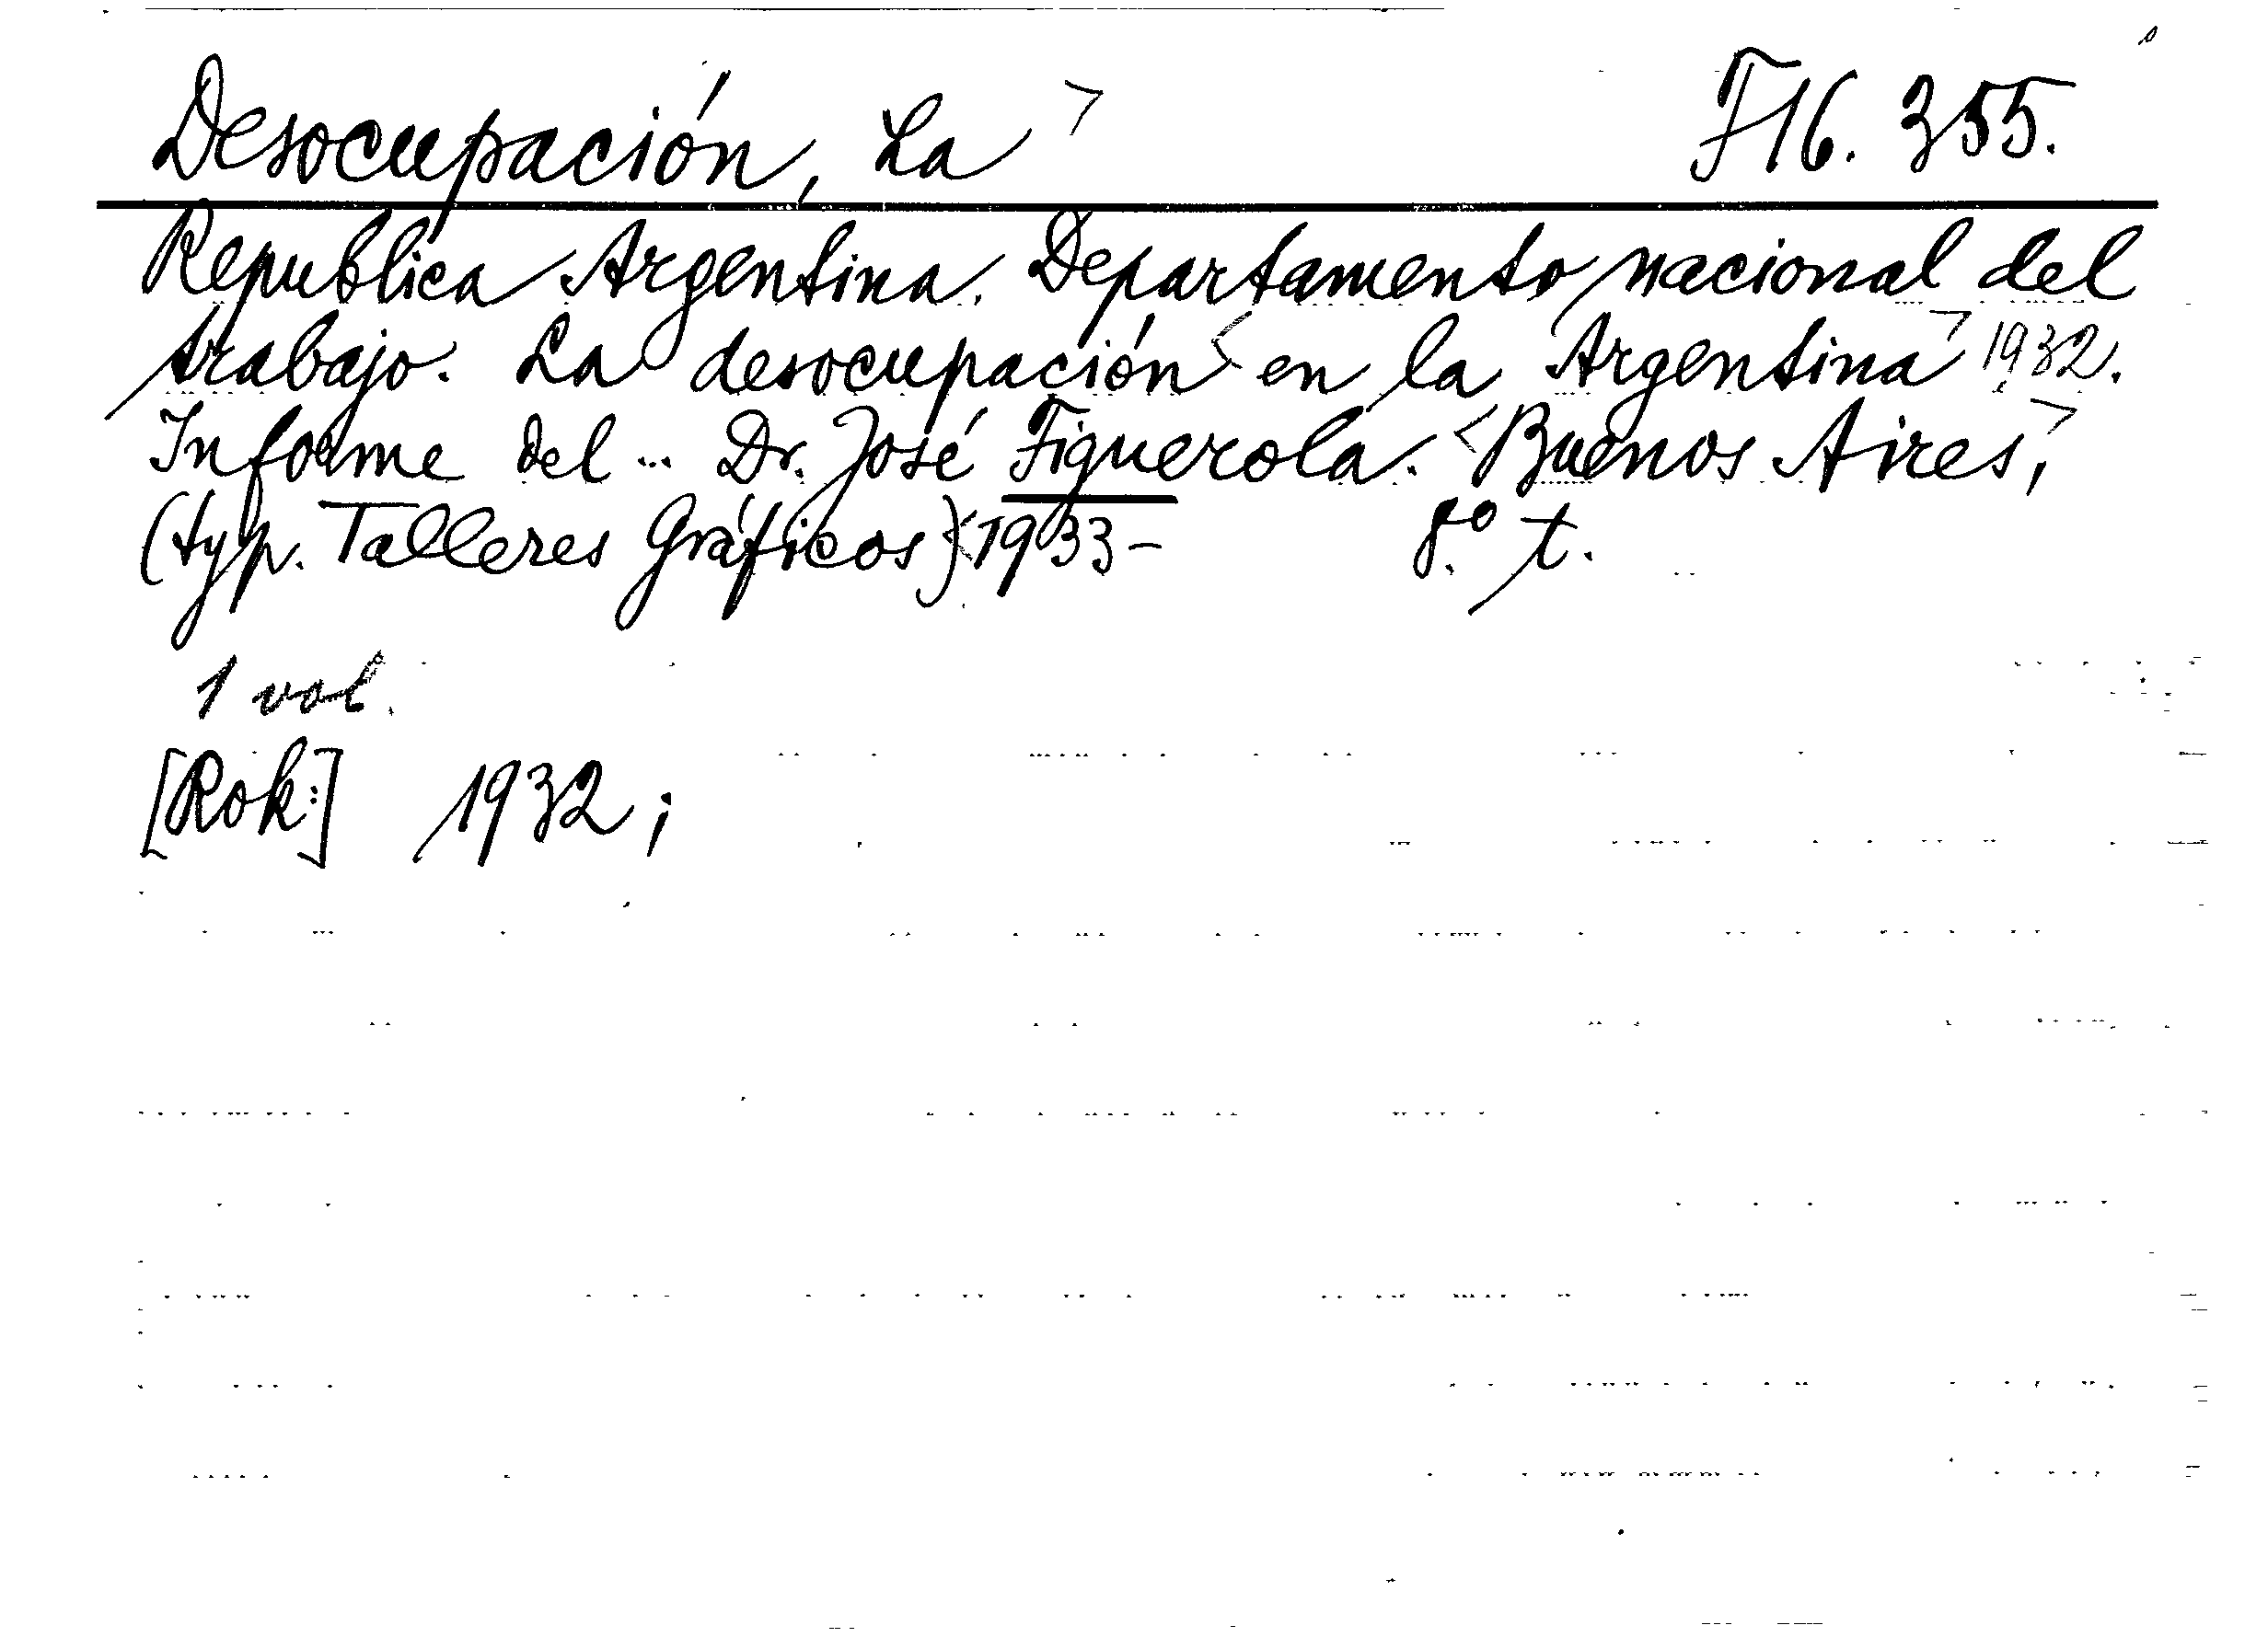 Desocupación, La > F16. 355.
Republica Argentina. Departamento nacional del
trabajo. La desocupación < en la Argentina > 1932.
Informe del ... Dr. José Figuerola. < Buenos Aires, >
(typ. Talleres Gráficos) < 1933 – 8.º t.
1 vol.
[Rok:] 1932 ;